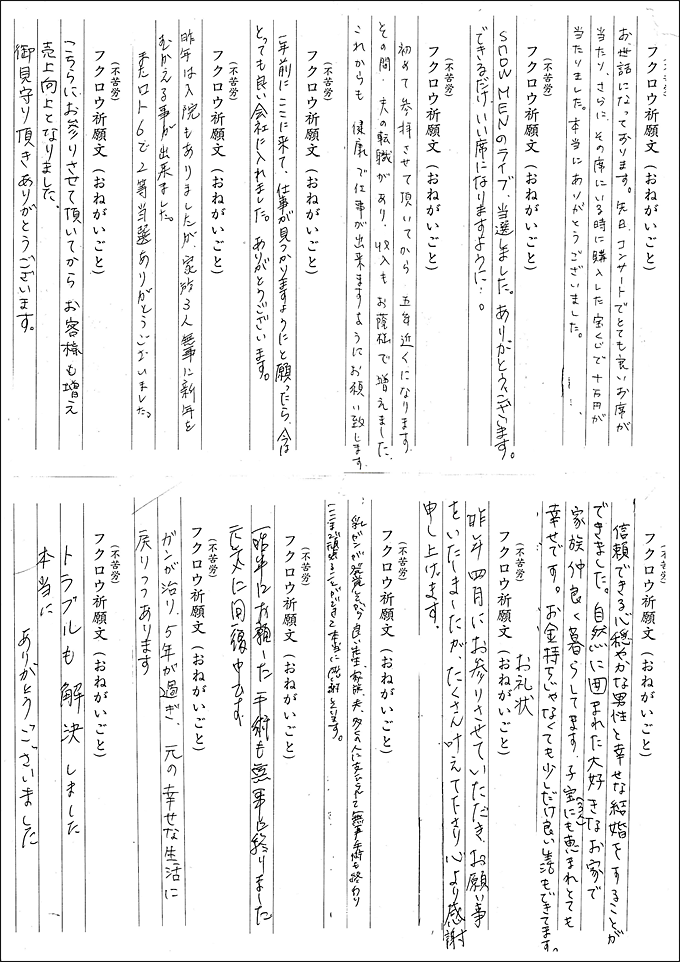 (不苦労)
フクロウ祈願文(おねがいごと)
お世話になっております。先日コンサートでとても良いお席が
当たり、さらに、その席にいる時に購入した宝くじで十万円が
当たりました。本当にありがとうございました。
(不苦労)
フクロウ祈願文(おねがいごと)
SNOW MENのライブ、当選しました。ありがとうございます。
できるだけ、いい席になりますように…。
(不苦労)
フクロウ祈願文(おねがいごと)
初めて参拝させて頂いてから五年近くになります。
その間、夫の転職があり、収入もお蔭様で増えました。
これからも健康で仕事が出来ますようにお願い致します。
(不苦労)
フクロウ祈願文(おねがいごと)
一年前にここに来て、仕事が見つかりますようにと願ったら、今は
とっても良い会社に入れました。ありがとうございます。
(不苦労)
フクロウ祈願文(おねがいごと)
昨年は入院もありましたが家族3人無事に新年を
むかえる事が出来ました。
またロト6で2等当選ありがとうございました。
(不苦労)
フクロウ祈願文(おねがいごと)
こちらにお参りさせて頂いてからお客様も増え
売上向上となりました。
御見守り頂きありがとうございます。
(不苦労)
フクロウ祈願文(おねがいごと)
信頼できる心穏やかな男性と幸せな結婚をすることが
できました。自然に囲まれた大好きなお家で
家族仲良く暮らしてます。子宝にも(3人)恵まれとても
幸せです。お金持ちじゃなくても少しだけ良い生活もできてます。
(不苦労)
フクロウ祈願文(おねがいごと)
お礼状
昨年四月にお参りさせていただき、お願い事
をいたしましたが、たくさん叶えて下さり心より感謝
申し上げます。
(不苦労)
フクロウ祈願文(おねがいごと)
乳ガンが発覚してから良い先生、家族、夫、多くの人に支えられて無事手術も終わり
ここまで頑張ることができて本当に感謝しています。
(不苦労)
フクロウ祈願文(おねがいごと)
昨年にお願いした手術も無事に終りました
元気に回復中です
(不苦労)
フクロウ祈願文(おねがいごと)
ガンが治り、5年が過ぎ、元の幸せな生活に
戻りつつあります
(不苦労)
フクロウ祈願文(おねがいごと)
トラブルも解決しました
本当に
ありがとうございました